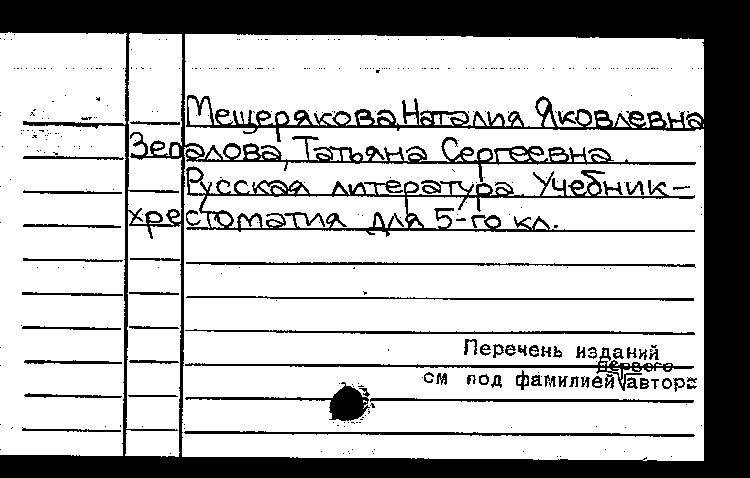 Мещерякова, Наталия Яковлевна
Зепалова, Татьяна Сергеевна.
Русская литература. Учебник-
хрестоматия для 5-го кл.
Перечень изданий
первого
см под фамилией √автора